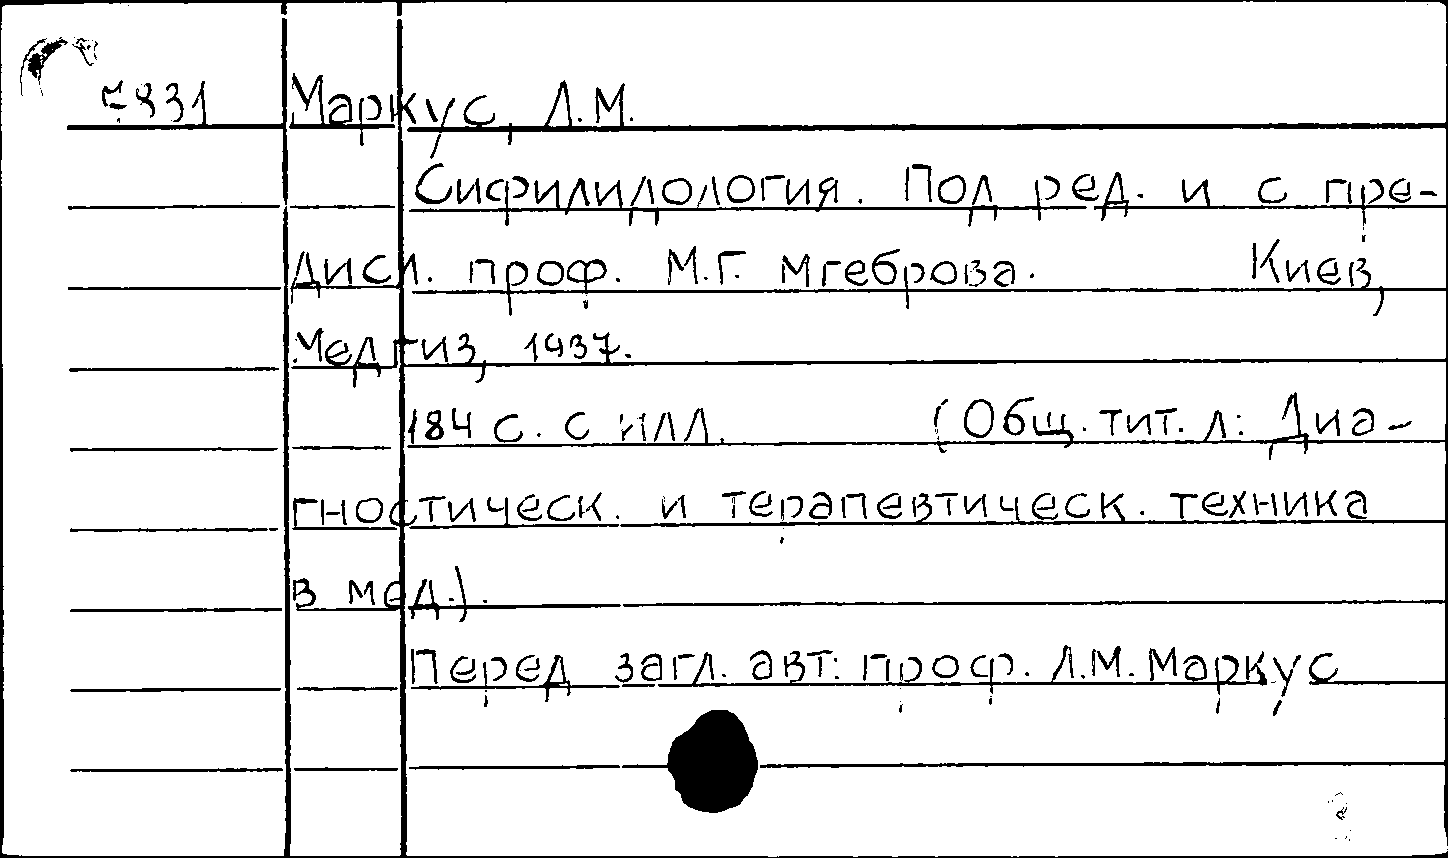 Маркус, Л.М.
Сифилидология. Под ред. и с пре-
дисл. проф. М.Г. Мгеброва. Киев,
Медгиз, 1937.
184 с. с илл. (Общ. тит. л: Диа-
гностическ. и терапевтическ. техника
в мед.).
Перед загл. авт: проф. Л.М. Маркус